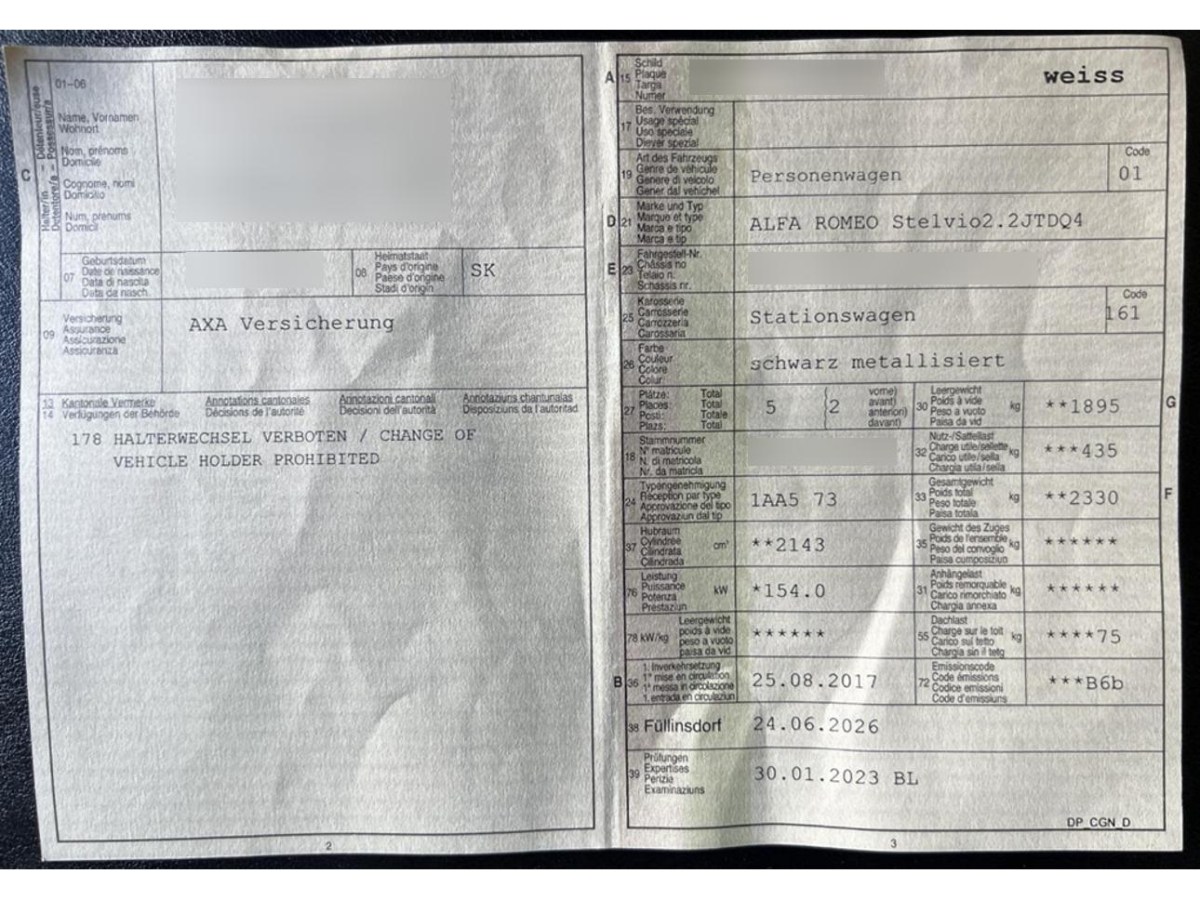 01-06
Halter/in - Détenteur/euse
Detentore/a - Possessur/a
C
Name, Vornamen
Wohnort
Nom, prénoms
Domicile
Cognome, nomi
Domicilio
Num, prenums
Domicil
07
Geburtsdatum
Date de naissance
Data di nascita
Data da nasch.
08
Heimatstaat
Pays d'origine
Paese d'origine
Stadi d'origin
SK
09
Versicherung
Assurance
Assicurazione
Assicuranza
AXA Versicherung
13 Kantonale Vermerke Annotations cantonales Annotazioni cantonali Annotaziuns chantunalas
14 Verfügungen der Behörde Décisions de l'autorité Decisioni dell'autorità Disposiziuns da l'autoritad
178 HALTERWECHSEL VERBOTEN / CHANGE OF
VEHICLE HOLDER PROHIBITED
2
A
15
Schild
Plaque
Targa
Numer
weiss
17
Bes. Verwendung
Usage spécial
Uso speciale
Diever spezial
19
Art des Fahrzeugs
Genre de véhicule
Genere di veicolo
Gener dal vehichel
Personenwagen
Code
01
D
21
Marke und Typ
Marque et type
Marca e tipo
Marca e tip
ALFA ROMEO Stelvio2.2JTDQ4
E
23
Fahrgestell-Nr.
Châssis no
Telaio n.
Schassis nr.
25
Karosserie
Carrosserie
Carrozzeria
Carossaria
Stationswagen
Code
161
26
Farbe
Couleur
Colore
Colur
schwarz metallisiert
27
Plätze: Total
Places: Total
Posti: Totale
Plazs: Total
5 (2
vorne)
avant)
anteriori)
davant)
30
Leergewicht
Poids à vide
Peso a vuoto
Paisa da vid
kg
**1895
G
18
Stammnummer
N° matricule
N. di matricola
Nr. da matricla
32
Nutz-/Sattellast
Charge utile/sellette
Carico utile/sella
Chargia utila/sella
kg
***435
24
Typengenehmigung
Réception par type
Approvazione del tipo
Approvaziun dal tip
1AA5 73
33
Gesamtgewicht
Poids total
Peso totale
Paisa totala
kg
**2330
F
37
Hubraum
Cylindrée
Cilindrata
Cilindrada
cm³
**2143
35
Gewicht des Zuges
Poids de l'ensemble
Peso del convoglio
Paisa cumposiziun
kg
******
76
Leistung
Puissance
Potenza
Prestaziun
kW
*154.0
31
Anhängelast
Poids remorquable
Carico rimorchiato
Chargia annexa
kg
******
78 kW/kg
Leergewicht
poids à vide
peso a vuoto
paisa da vid
******
55
Dachlast
Charge sur le toit
Carico sul tetto
Chargia sin il tetg
kg
****75
B
36
1. Inverkehrsetzung
1ʳᵉ mise en circulation
1ª messa in circolazione
1. entrada en circulaziun
25.08.2017
72
Emissionscode
Code émissions
Codice emissioni
Code d'emissiuns
***B6b
38 Füllinsdorf
24.06.2026
39
Prüfungen
Expertises
Perizie
Examinaziuns
30.01.2023 BL
DP_CGN_D
3